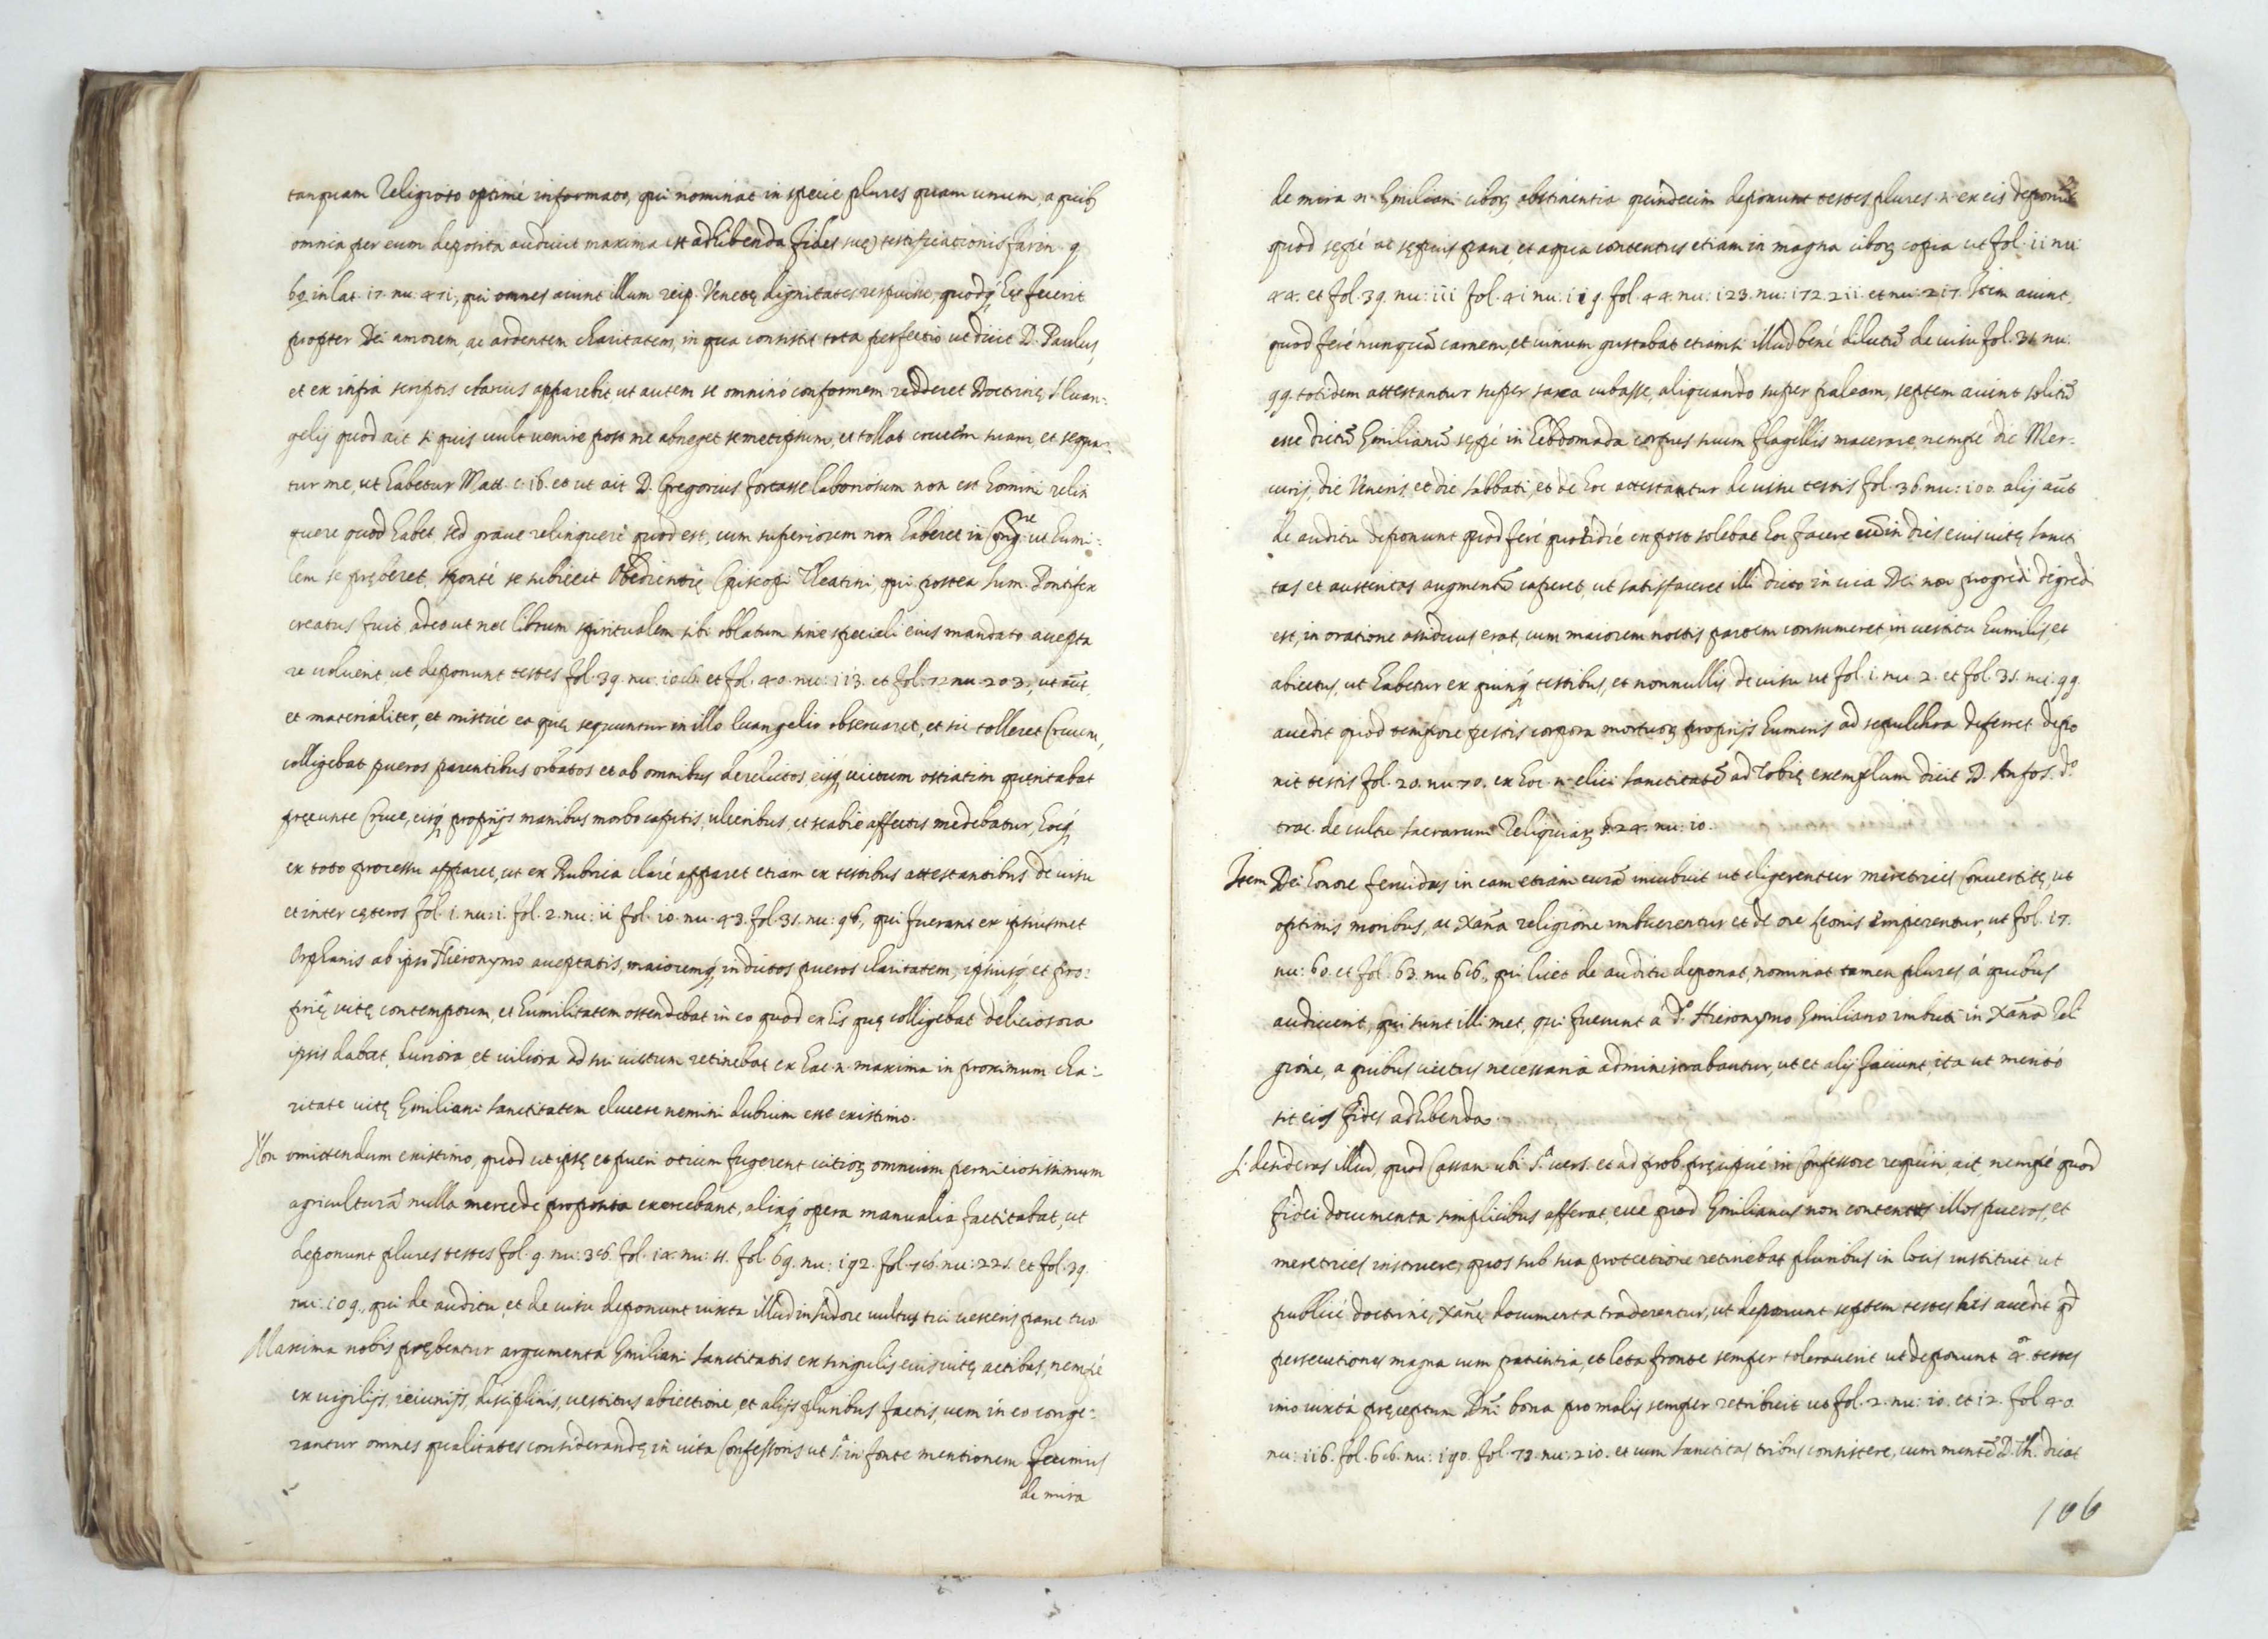 tanquam Religioso optimè informato, qui nominat in specie plures quam unum, a quib9
omnia per eum deposita audivit maxima est adhibenda fides suę testificationis Farin. q.
69. in lat. 17. nu. 471, qui omnes aiunt illum reip. Venetę dignitates respuisse, quodq; hęc fecerit
propter Dei amorem, ac ardentem charitatem, in qua consistit tota perfectio ut dicit D. Paulus,
et ex infra scriptis clarius apparebit ut autem se omninò conformem redderet Doctrinę Evan:
gelij quod ait si quis vult venire post me abneget semetipsum, et tollat crucem suam, et sequa:
tur me, ut habetur Matt. c. 16. et ut ait D. Gregorius fortasse laboriosum non est homini relin
quere quod habet, sed graue relinquere quod est, cum superiorem non haberet in Congne. ut humi:
lem se pręberet, spontè se subiecit Obedientię Episcopi Theatini, qui postea Sum. Pontifex
creatus fuit, adeo ut nec librum spiritualem sibi oblatum sine speciali eius mandato accepta
re voluerit, ut deponunt testes fol. 39. nu: et fol. 40. nu: 113. et fol. 72 nu. 203., ut aũt
et materialiter, et misticè ea quę sequuntur in illo Euangelio obseruaret, et sic tolleret Crucem,
colligebat pueros parentibus orbatos et ab omnibus derelictos, eisq; victum ostiatim queritabat
pręeunte Cruce, eisq; proprijs manibus morbo capitis, ulceribus, et scabie affectis medebatur, hocq;
ex toto processu apparet, ut ex Rubrica clarè apparet etiam ex testibus attestantibus de visu
et inter cęteros fol. 1. nu: 1. fol. 2. nu: 11 fol. 10. nu. 43. fol. 35. nu: 96, qui fuerant ex ipsismet
Orphanis ab ipso Hieronymo acceptatis, maioremq; in dictos pueros charitatem, ipsiusq; et pro:
prię vitę contemptum, et humilitatem ostendebat in eo quod ex his quę colligebat deliciosora
ipsis dabat, duriora, et viliora ad sui victum retinebat ex hac n. maxima in proximum cha:
ritate vitę Emiliani sanctitatem elucere nemini dubium esse existimo.
Non omittendum existimo, quod ut ipse et pueri otium fugerent vitioꝝ omnium perniciosissimum
agriculturã nulla mercede proposita exercebant, aliaq; opera manualia factitabat, ut
deponunt plures testes fol. 9. nu: 36. fol. nu: fol. 69. nu: 192. fol. 76. nu: 225. et fol. 39.
nu: 109., qui de auditu, et de visu deponunt iuxta illud in sudore vultus tui vesceris pane tuo.
Maxima nobis prębentur argumenta Emiliani sanctitatis ex singulis eius vitę actibus, nempè
ex vigilijs, ieiunijs, disciplinis, vestitus abiectione, et alijs pluribus factis, cum in eo conge:
rantur omnes qualitates considerandę in vita Confessoris ut sª. in fonte mentionem fecimus
de mira
de mira n. Emiliani ciboꝝ abstinentia quindecim deponunt testes plures. n. ex eis deponũt
quod sępè ac sępius pane, et aqua contentus etiam in magna ciboꝝ copia ut fol. 11 nu:
44. et fol. 39. nu: 111 fol. 41 nu: 119. fol. 44. nu: 123. nu: 172. 211. et nu: 217. Item aiunt,
quod ferè nunquã carnem, et vinum gustabat etiamsi illud benè dilutũ de visu fol. 35 nu.
99. totidem attestantur super saxa cubasse, aliquando super paleam, septem aiunt solitũ
esse dictũ Emilianũ sępè in hebdomada corpus suum flagellis macerare, nempe die Mer:
curij, die Veneris, et die Sabbati, et de hoc attestantur de visu testis fol. 36. nu: 100. alij aũt
de auditu deponunt quod ferè quotidiè ex post solebat hoc facere cũ in dies eius vitę sancti
tas et austeritas augmentũ caperet, ut satisfaceret illi dicto in via Dei non progredi digredi
est, in oratione assiduus erat, cum maiorem noctis partem consumeret, in vestitu humilis, et
abiectus, ut habetur ex quinq; testibus, et nonnullis de visu ut fol. 1. nu. 2. et fol. 35. nu: 99.
accedit quod tempore pestis corpora mortuoꝝ proprijs humeris ad sepulchra deferret depo
nit testis fol. 20. nu. 70. ex hoc n. elici sanctitatẽ ad Tobię exemplum dicit D. Anfos. d.º
trac. de cultu sacrarum Reliquiaꝝ §. 24. nu: 10.
Item Dei honore feruidus in eam etiam curã incubuit ut eligerentur meretrices Convertitę, ut
optimis moribus, ac Xana religione imbuerentur et de ore Leonis eriperentur, ut fol. 17.
nu: 60. et fol. 63. nu , qui licet de auditu deponat, nominat tamen plures à quibus
audiuerit, qui sunt illi met, qui fuerunt a d.º Hieronymo Emiliano imbuti in Xana Reli
gione, a quibus victus necessaria administrabantur, ut et alij faciunt, ita ut meritò
sit eis fides adhibenda.
Si desideras illud, quod Cassan. ubi s.ª vers. et ad prob. pręcipuè in Confessore requiri, ait nempè quod
fidei documenta simplicibus afferat, ecce quod Emilianus non contentus illos pueros, et
meretrices instruere, quos sub sua protectione retinebat pluribus in locis instituit ut
publicè doctrinę Xanę documenta traderentur, ut deponunt septem testes his accedit qd
persecutiones magna cum patientia, et leta fronte semper tolerauerit ut deponunt 4.or testes
imo iuxta pręceptum Dñi bona pro malis semper retribuit ut fol. 2. nu: 10. et 12. fol. 40.
nu: 116. fol. nu: 190. fol. 73. nu: 210. et cum sanctitas tribus consistere, cum mentẽ D. Th. dicat
106